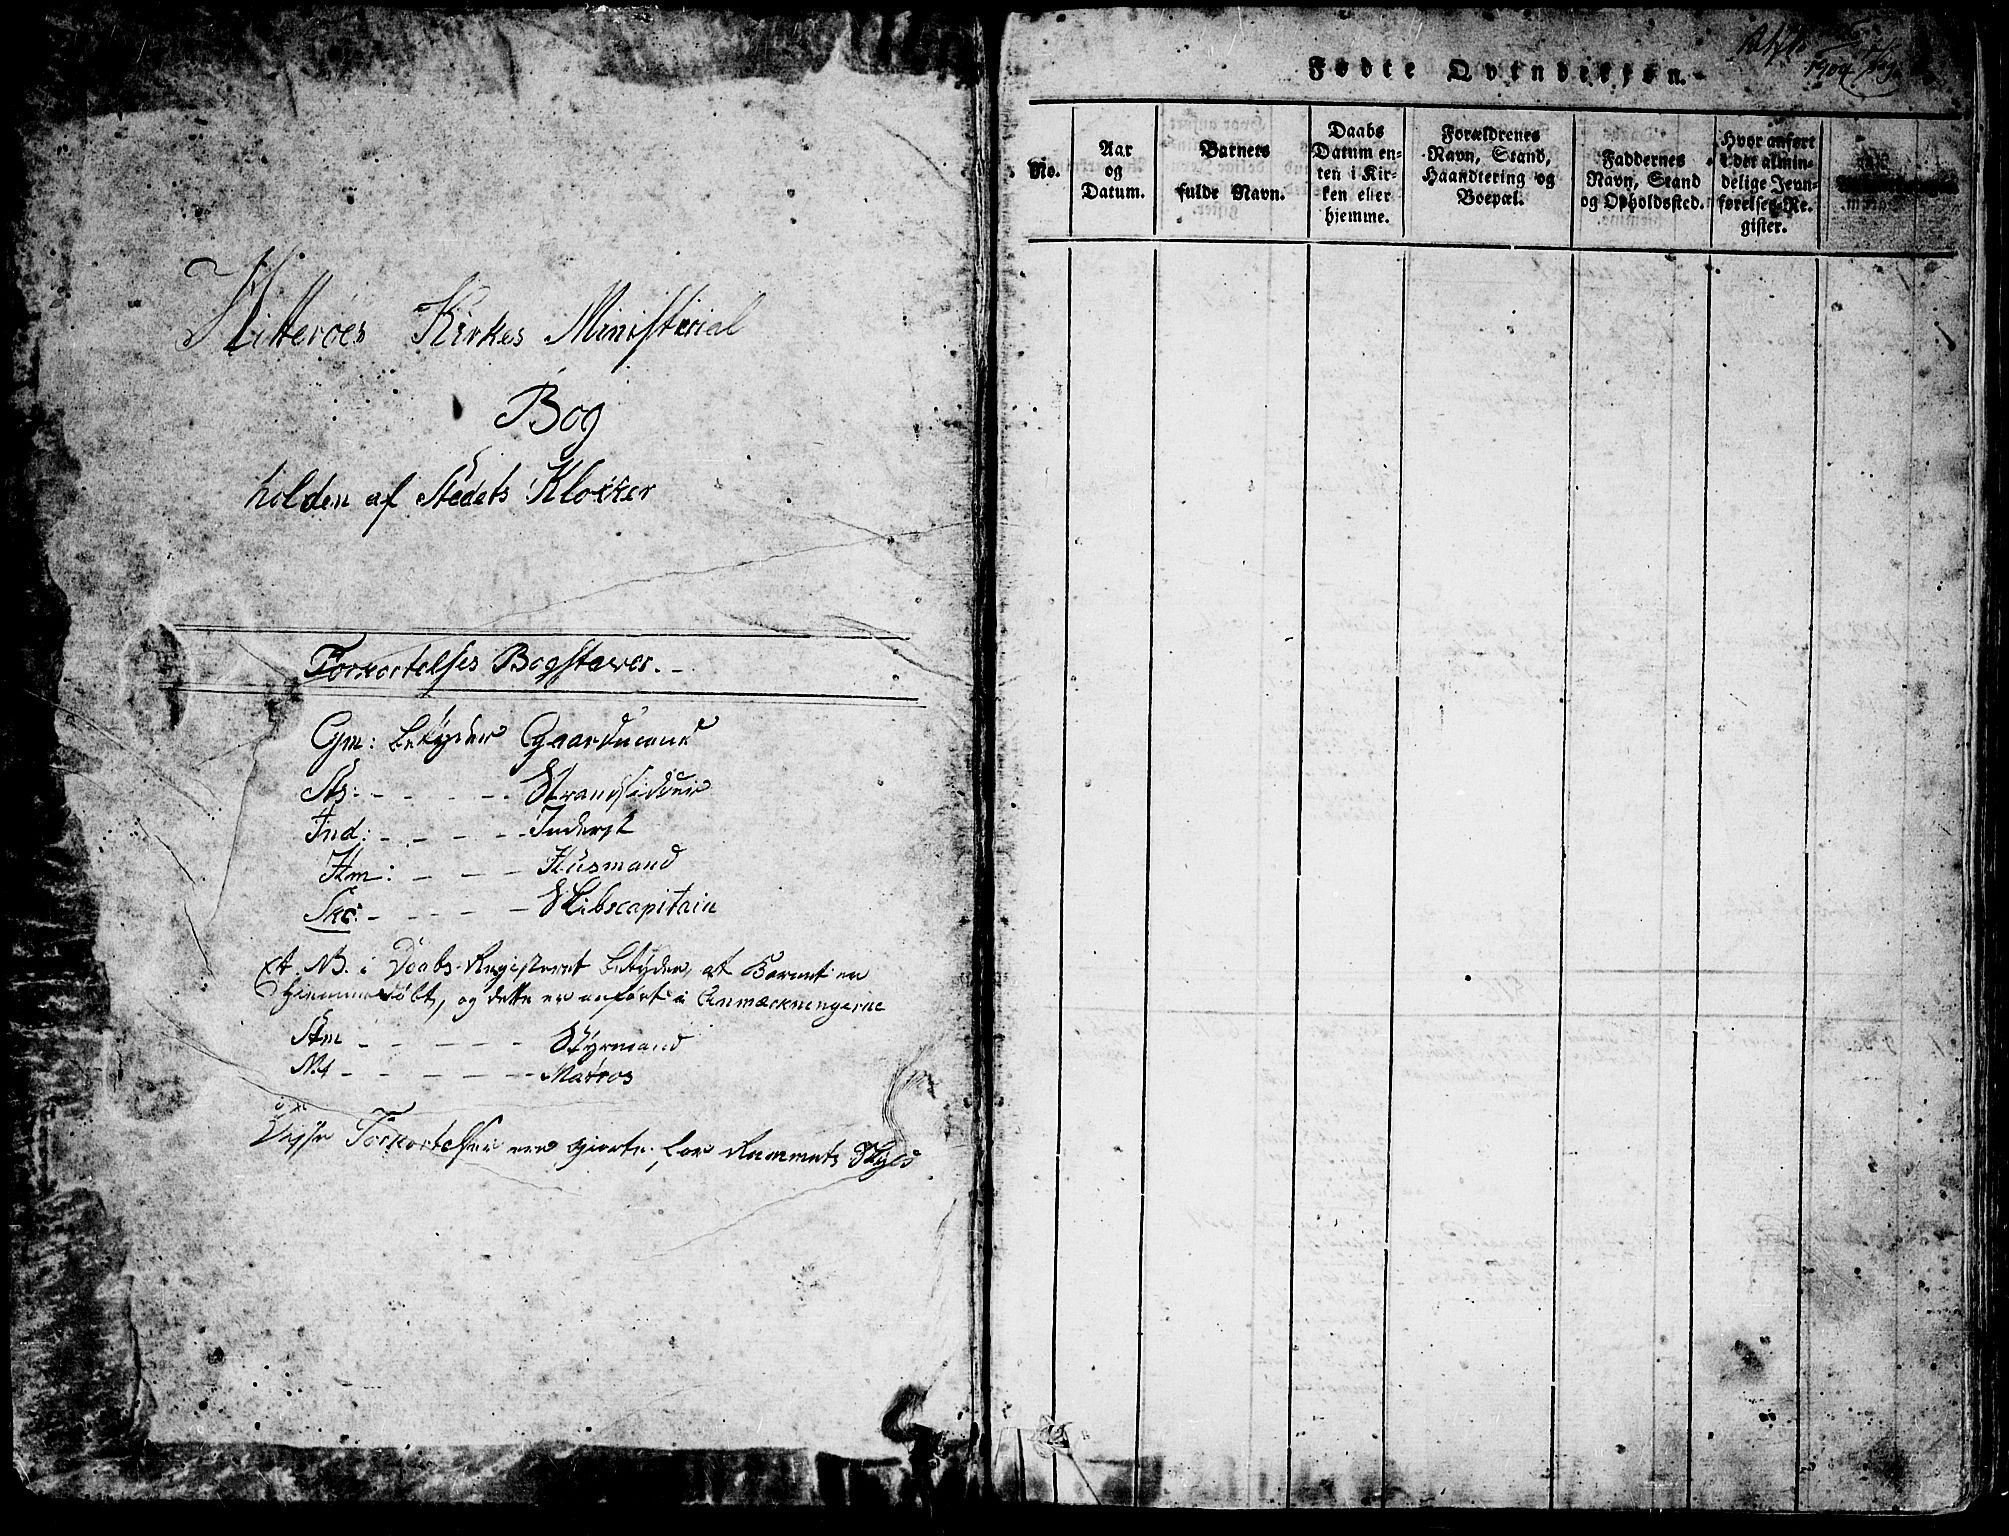 Hitterøes Kirkes Ministerial
Bog
holden af Stedets Klokker
Forkortelses Bogstaver. -
Gm: betyder Gaardmand
Sts: - - - - Strandsidder
Ind: - - - - Inderst
Hm: - - - Husmand
Skc: - - - - Skibscapitain
et NB. i Daabs-Registeret betyder, at Barnet er
hjemmedøbt, og dette er anført i Anmærkningerne
Stm - - - - - Styrmand
Mt - - - - - - Matros
Disse Forkortelser ere gjorte for Rummets Skyld
1904
Fødte Qvindekiøn.
No.
Aar
og
Datum.
Barnets
fulde Navn.
Daabs
Datum en=
ten i Kir=
ken eller
hjemme.
Forældrenes
Navn, Stand,
Haandtering og
Boepæl.
Faddernes
Navn, Stand
og Opholdssted.
Hvor anført
i det almin=
delige Jevn=
førelses-Re=
gister.